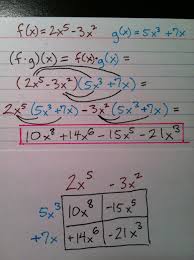 f(x)=2x⁵-3x² g(x)=5x³+7x
(f·g)(x)=f(x)·g(x)=
(2x⁵-3x²)(5x³+7x)=
2x⁵(5x³+7x)-3x²(5x³+7x)=
10x⁸+14x⁶-15x⁵-21x³
2x⁵ -3x²
5x³ 10x⁸ -15x⁵
+7x +14x⁶ -21x³